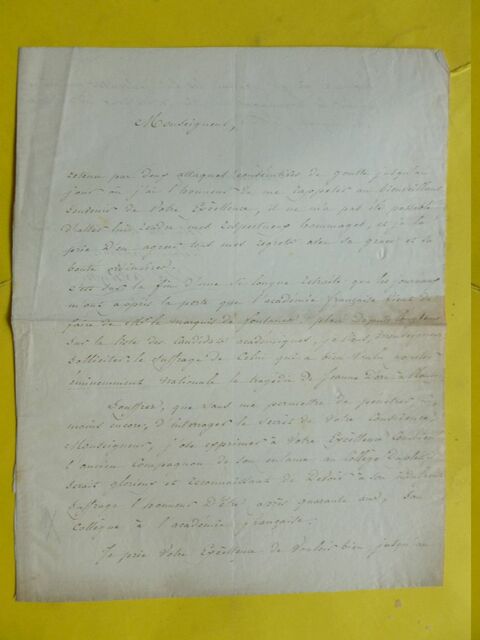 Monseigneur,
retenu par deux attaques consécutives de goutte jusqu'au
jour où j'ai l'honneur de me rappeler au bienveillant
souvenir de Votre Excellence, il ne m'a pas été possible
d'aller lui rendre mes respectueux hommages, et je la
prie d'en agréer tous mes regrets avec sa grace et sa
bonté ordinaires.
c'est sur la fin d'une si longue retraite que les journaux
m'ont appris la perte que l'académie française vient de
faire de Mr. le marquis de fontanes. placé depuis
sur la liste des candidats académiques, je Monseigneur
solliciter le suffrage de Celui qui a bien voulu
éminemment nationale la tragédie de Jeanne d'arc à
Souffrez, que sans me permettre de pénétrer,
moins encore, d'interroger le secret de Votre Conscience,
Monseigneur, j'ose exprimer à Votre Excellence Combien
l'ancien Compagnon de son enfance au Collége Duplessis
serait glorieux et reconnaissant de Devoir à son
suffrage l'honneur d'être après quarante ans, Son
Collègue à l'académie française.
Je prie Votre Excellence de Vouloir bien jusqu'au